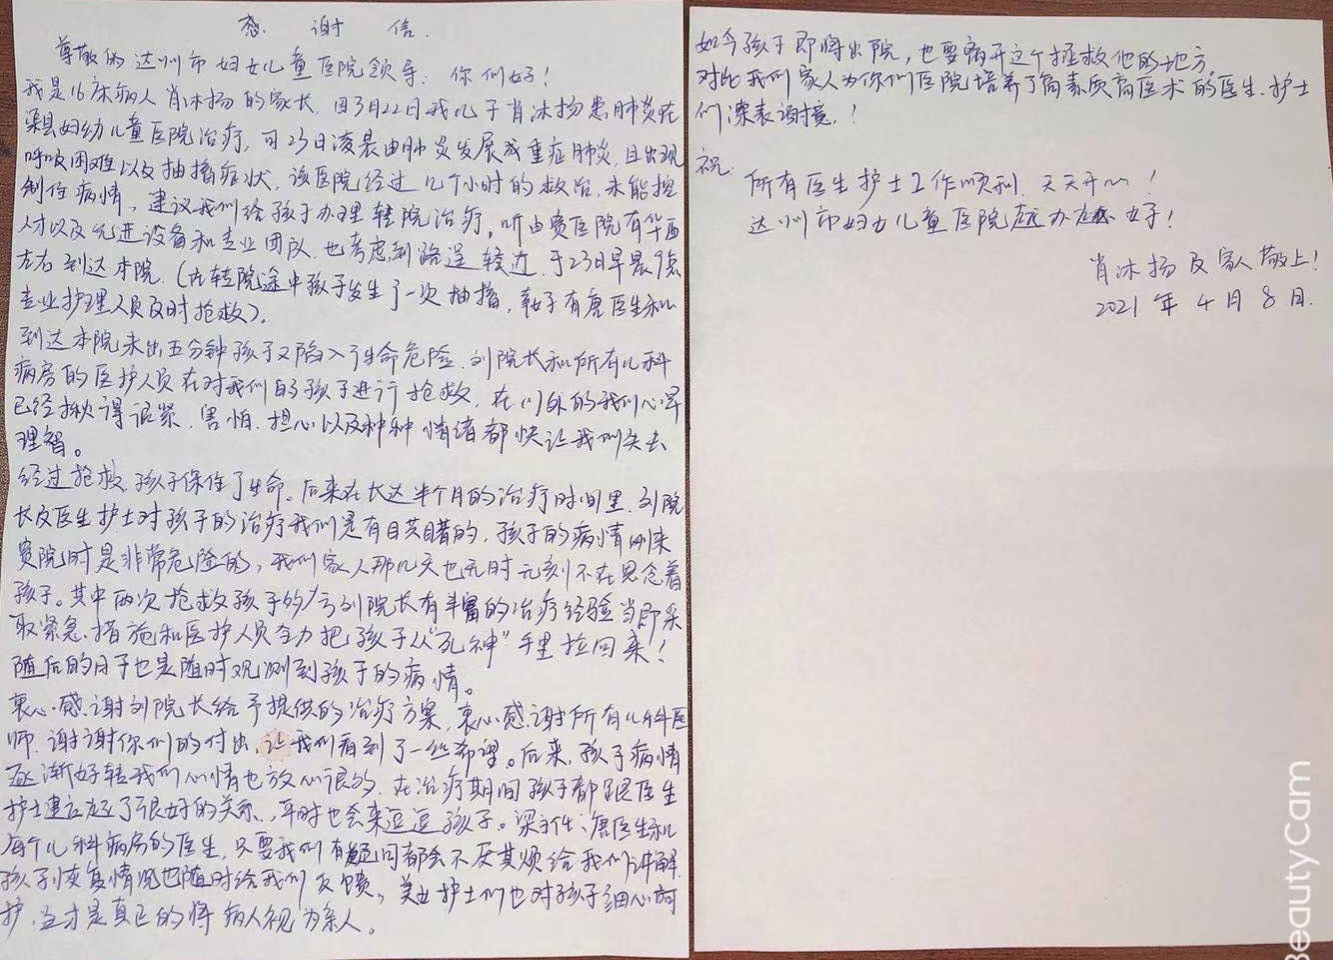 感 谢 信.
尊敬的达州市妇女儿童医院领导: 你们好!
我是16床病人肖冰扬的家长, 因3月22日我儿子肖冰扬患肺炎在
渠县妇幼儿童医院治疗, 可23日凌晨由肺炎发展成重症肺炎, 且出现
呼吸困难以及抽搐症状, 该医院经过几个小时的救治, 未能控
制住病情, 建议我们给孩子办理转院治疗。听由贵医院有华西
人才以及先进设备和专业团队, 也考虑到路途较近, 于23日早晨9点
左右到达本院.(在转院途中孩子发生了一次抽搐, 幸好有唐医生和
专业护理人员及时抢救)。
到达本院未出五分钟孩子又陷入了生命危险, 刘院长和所有儿科
病房的医护人员在对我们的孩子进行抢救, 在门外的我们心早
已经揪得很紧, 害怕、担心以及种种情绪都快让我们失去
理智。
经过抢救, 孩子保住了生命, 后来在长达半个月的治疗时间里, 刘院
长及医生护士对孩子的治疗我们是有目共睹的, 孩子的病情刚来
贵院时是非常危险的, 我们家人那几天也无时无刻不在思念着
孩子。其中两次抢救孩子的亏刘院长有丰富的治疗经验当即采
取紧急措施和医护人员全力把孩子从"死神"手里拉回来!
随后的日子也是随时观测到孩子的病情。
衷心感谢刘院长给予提供的治疗方案, 衷心感谢所有儿科医
师, 谢谢你们的付出, 让我们看到了一丝希望。后来, 孩子病情
逐渐好转我们心情也放心很多, 在治疗期间孩子都跟医生
护士建立起了很好的关系, 平时也会来逗逗孩子。梁主任、唐医生和
每个儿科病房的医生, 只要我们有疑问都会不厌其烦给我们讲解,
孩子恢复情况也随时给我们反馈, 美女护士们也对孩子细心呵
护, 这才是真正的将病人视为亲人。
如今孩子即将出院, 也要离开这个拯救他的地方,
对此我们家人为你们医院培养了高素质高医术的医生、护士
们深表谢意!
祝:
所有医生护士工作顺利, 天天开心!
达州市妇女儿童医院越办越好!
肖冰扬及家人敬上!
2021年4月8日.
BeautyCam